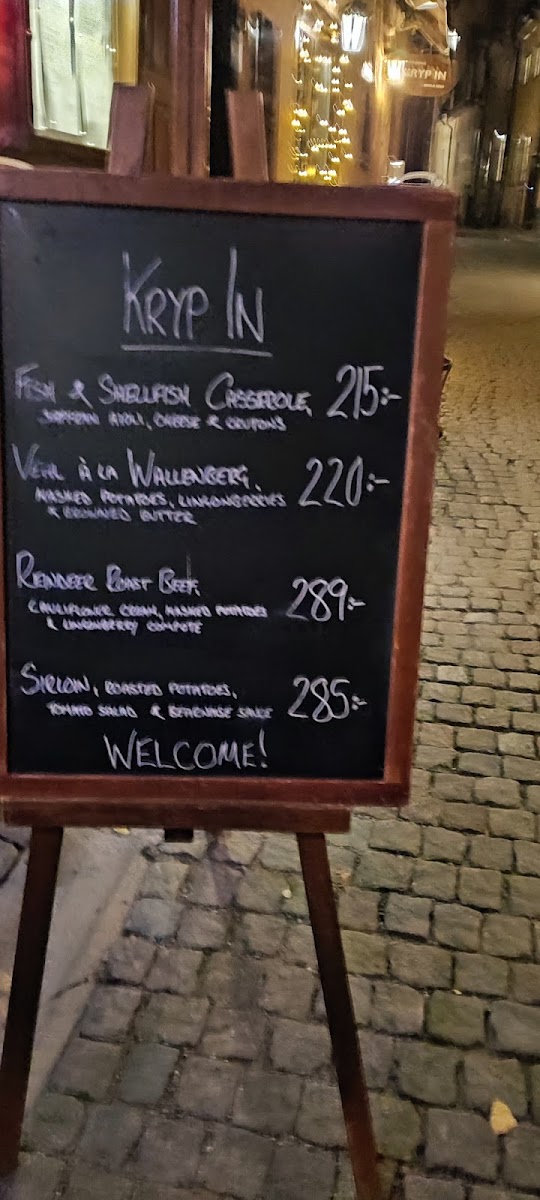 KRYP IN
KRYP IN
FISH & SHELLFISH CASSEROLE, 215:-
SAFFRON AYOLI, CHEESE & CRUTONS
VEAL À LA WALLENBERG, 220:-
MASHED POTATOES, LINGONBERRIES
& BROWNED BUTTER
REINDEER ROAST BEEF, 289:-
CAULIFLOWER CREAM, MASHED POTATOES
& LINGONBERRY COMPOTE
SIRLOIN, ROASTED POTATOES, 285:-
TOMATO SALAD & BEARNAISE SAUCE
WELCOME!